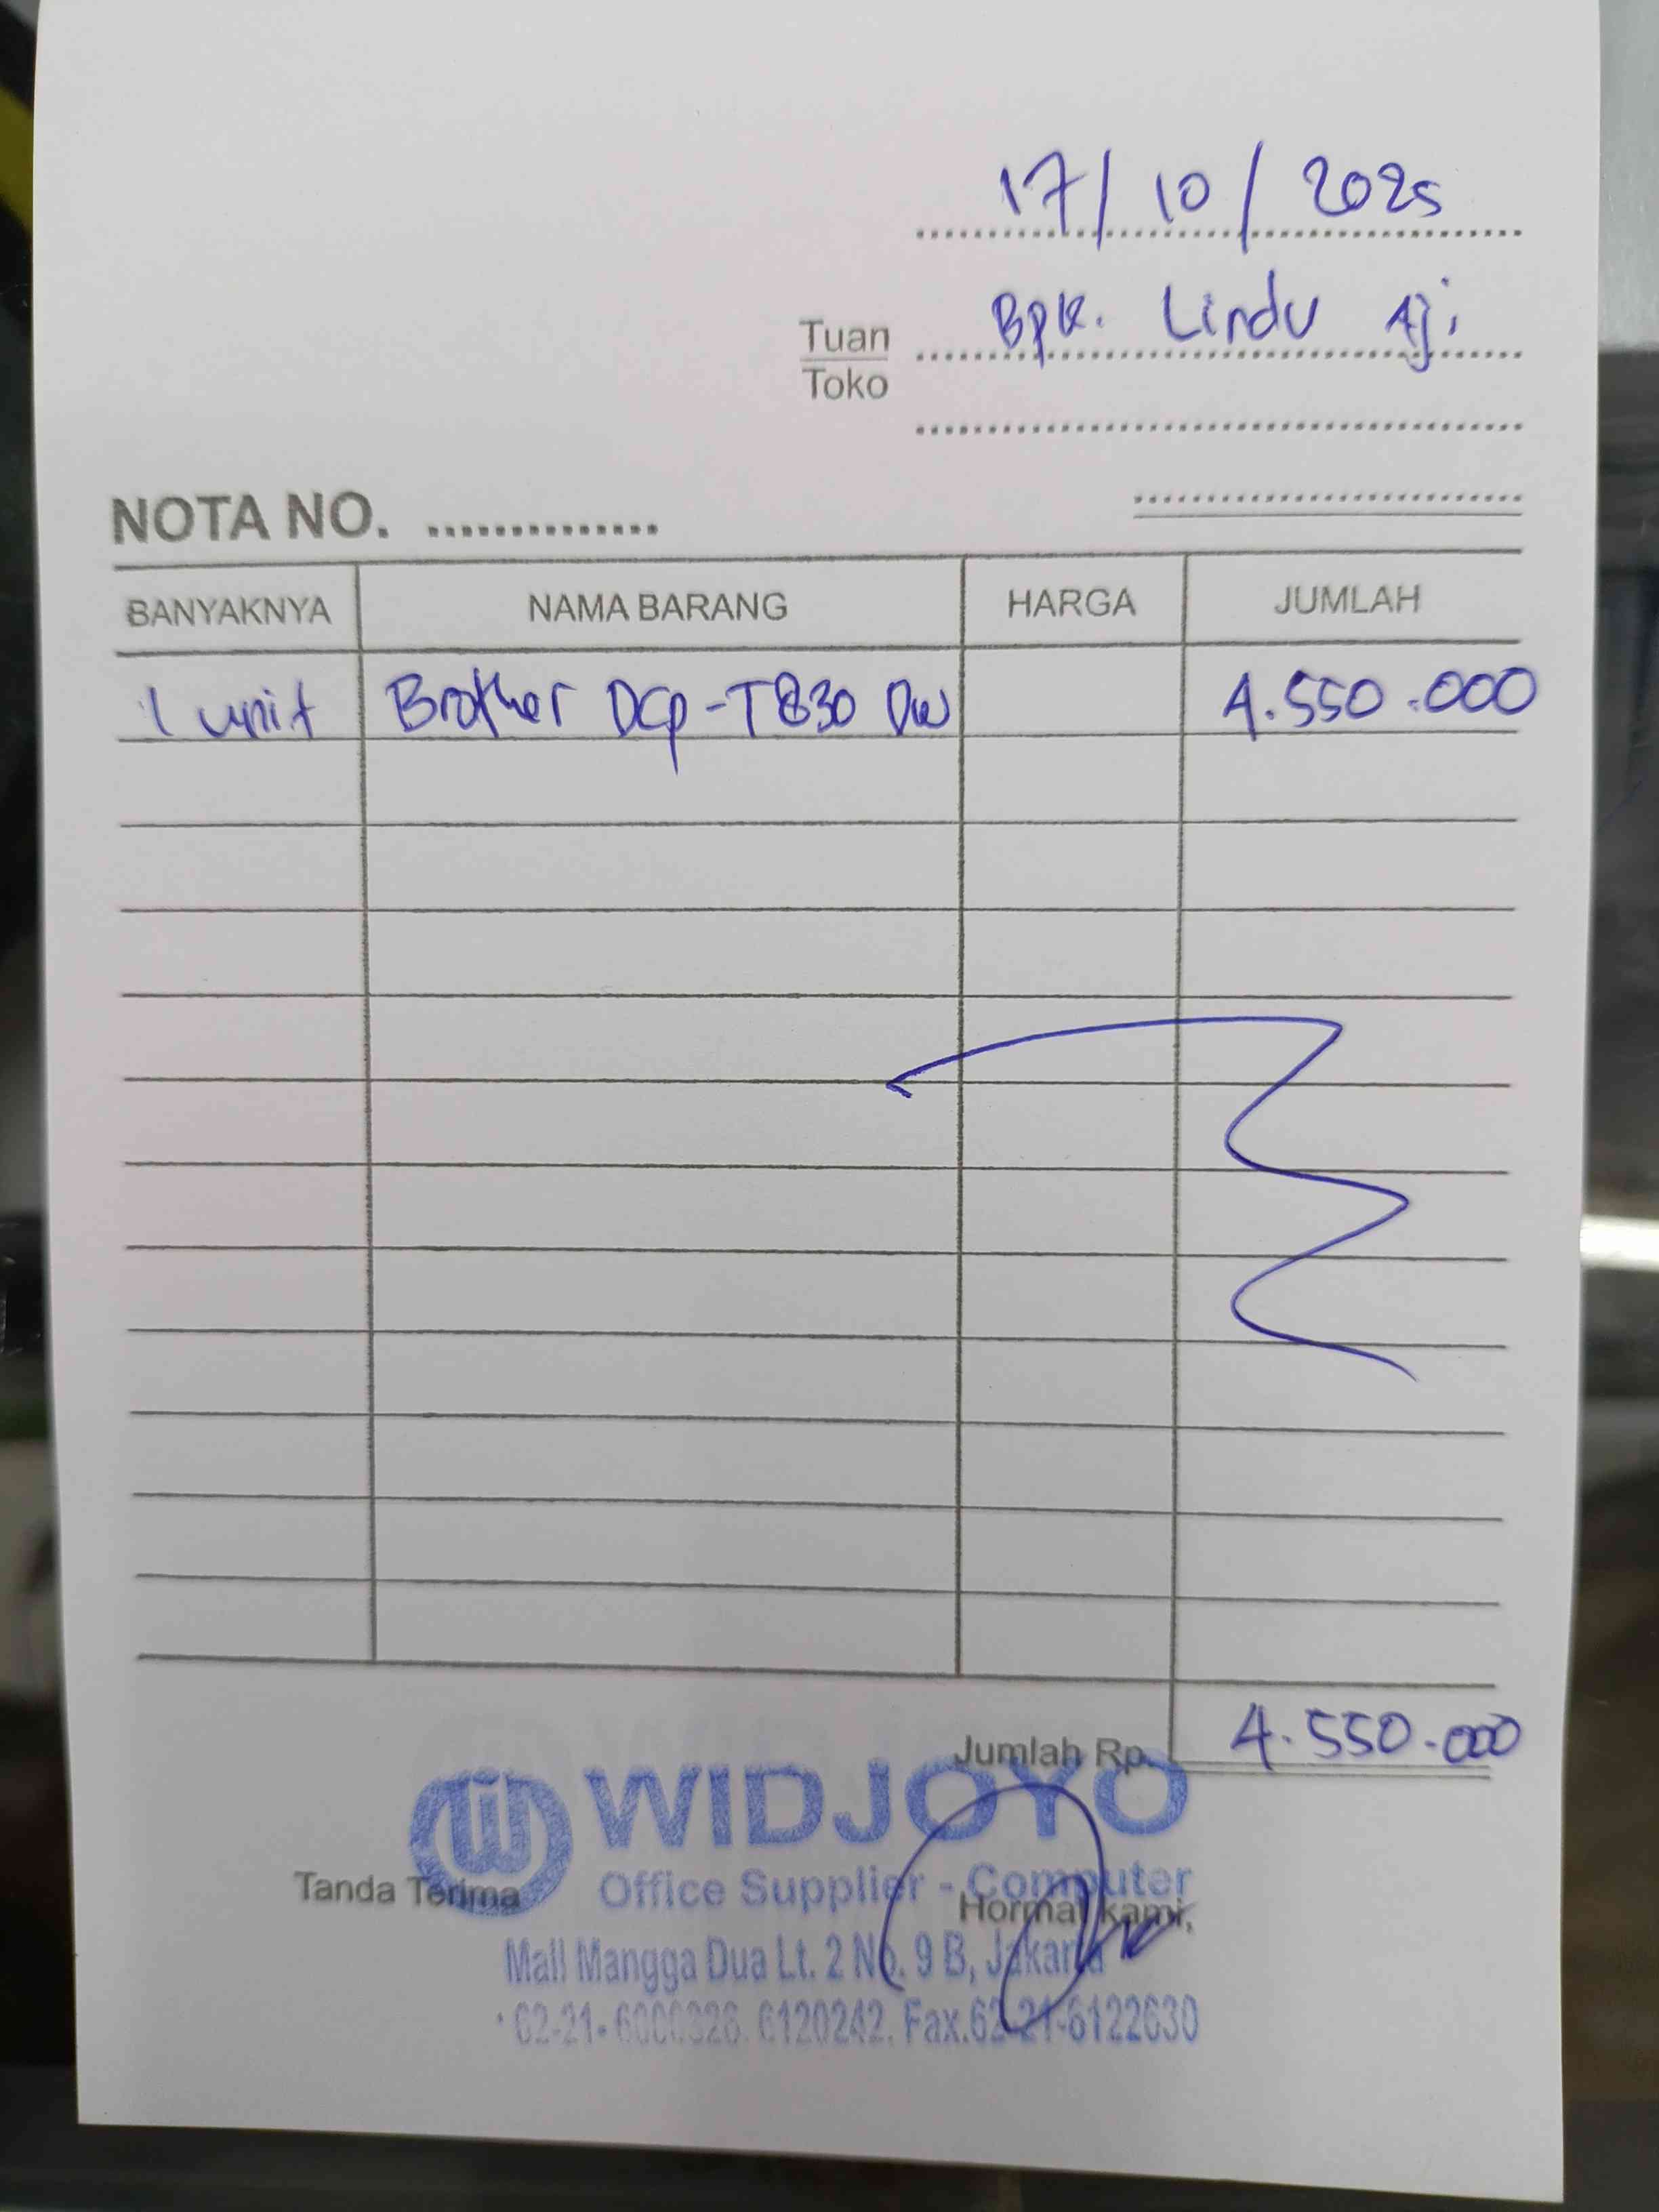 17/10/2025
Tuan Bpk. Lindu Aji
Toko
NOTA NO. ..............
BANYAKNYA NAMA BARANG HARGA JUMLAH
1 unit Brother Dcp-T830 Dw 4.550.000
Jumlah Rp. 4.550.000
WIDJOYO
Office Supplier - Computer
Tanda Terima Hormat kami,
Mall Mangga Dua Lt. 2 No. 9 B, Jakarta
62-21- 6120242. Fax.62-21-6122630